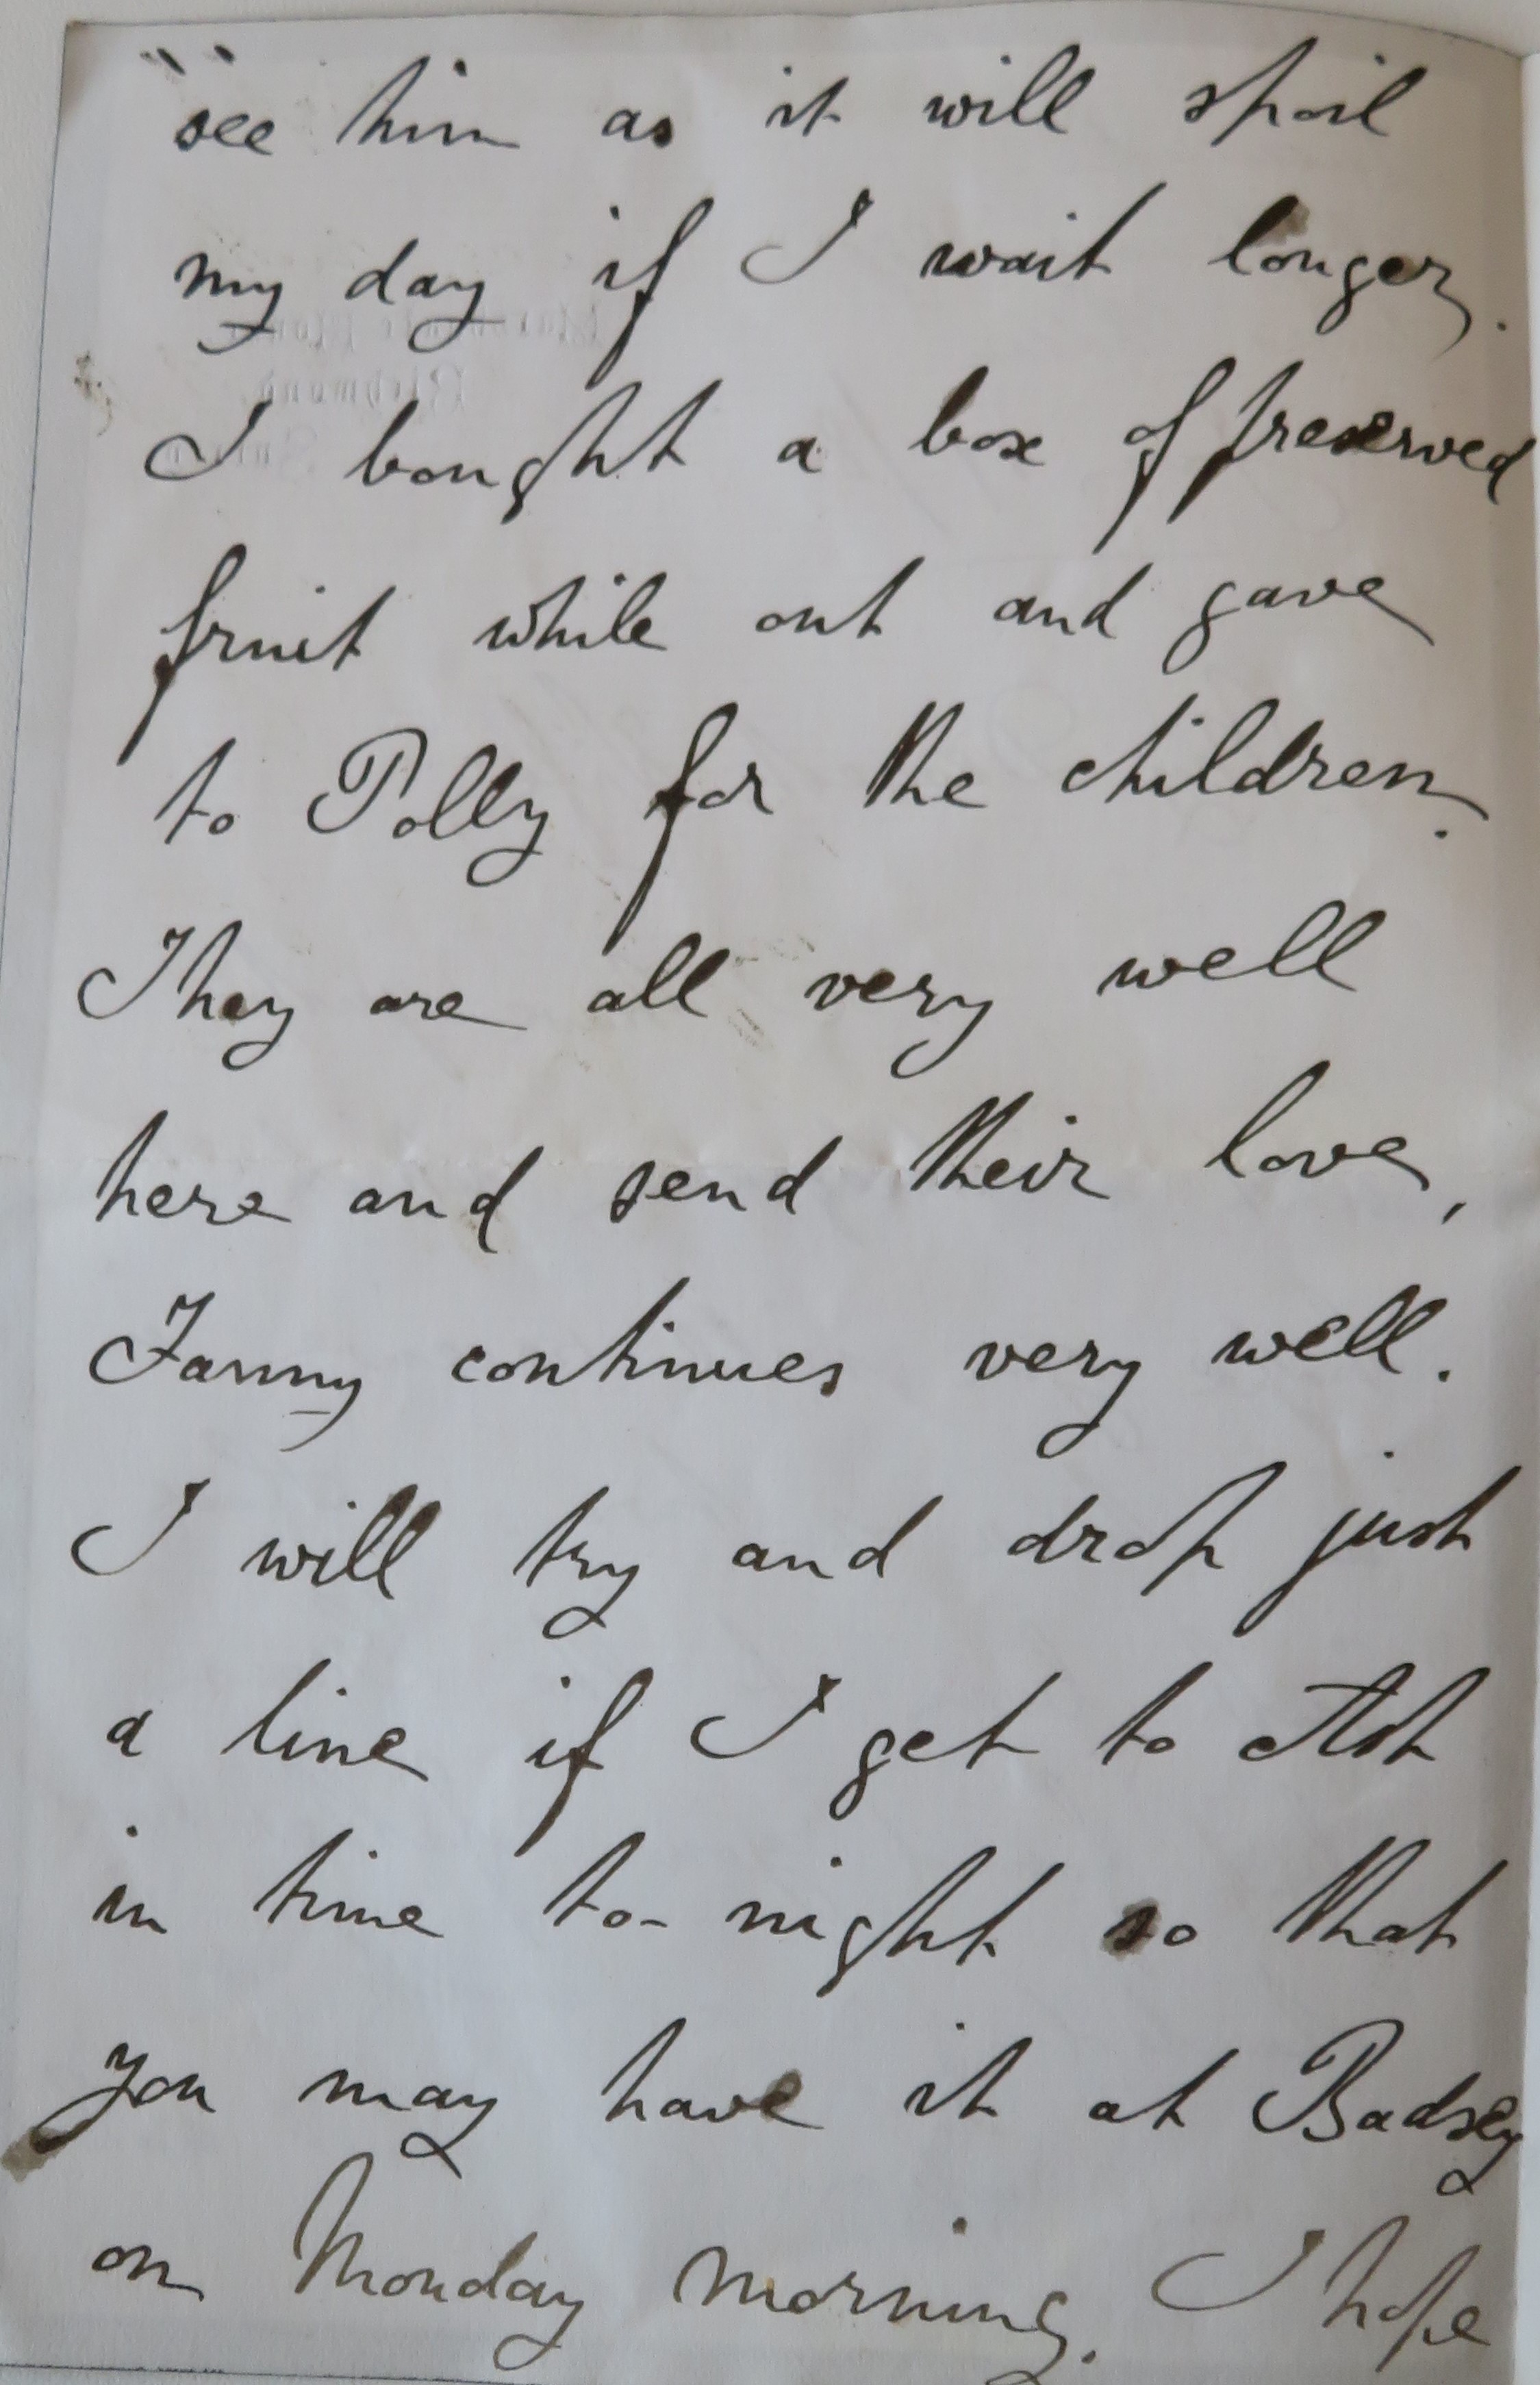 see him as it will spoil
my day if I wait longer.
I bought a box of preserved
fruit while out and gave
to Polly for the children.
They are all very well
here and send their love,
Fanny continues very well.
I will try and drop just
a line if I get to Ash
in time to-night so that
you may have it at Badsey
on Monday morning. I hope